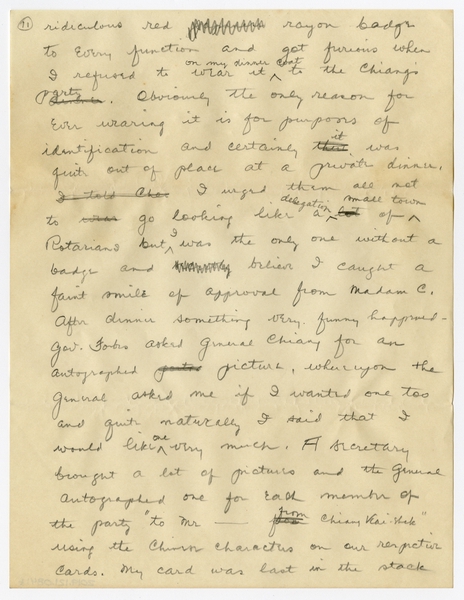 11
ridiculous red rayon badge
to every function and got furious when
on my dinner coat
I refused to wear it ^ to the Chiang's
party
dinner. Obviously the only reason for
ever wearing it is for purposes of
it
identification and certainly this was
quite out of place at a private dinner.
I told Chas I urged them all not
delegation small town
to wear go looking like a ^ lot of ^
I
Rotarians but ^ was the only one without a
badge and believe I caught a
faint smile of approval from Madam C.
After dinner something very funny happened -
Gov. Forbes asked General Chiang for an
autographed picture, whereupon the
General asked me if I wanted one too
and quite naturally I said that I
one
would like ^ very much. A secretary
brought a lot of pictures and the General
autographed one for each member of
from
the party "to Mr — for Chiang Kai-Shek"
using the Chinese characters on our respective
cards. My card was last in the stack